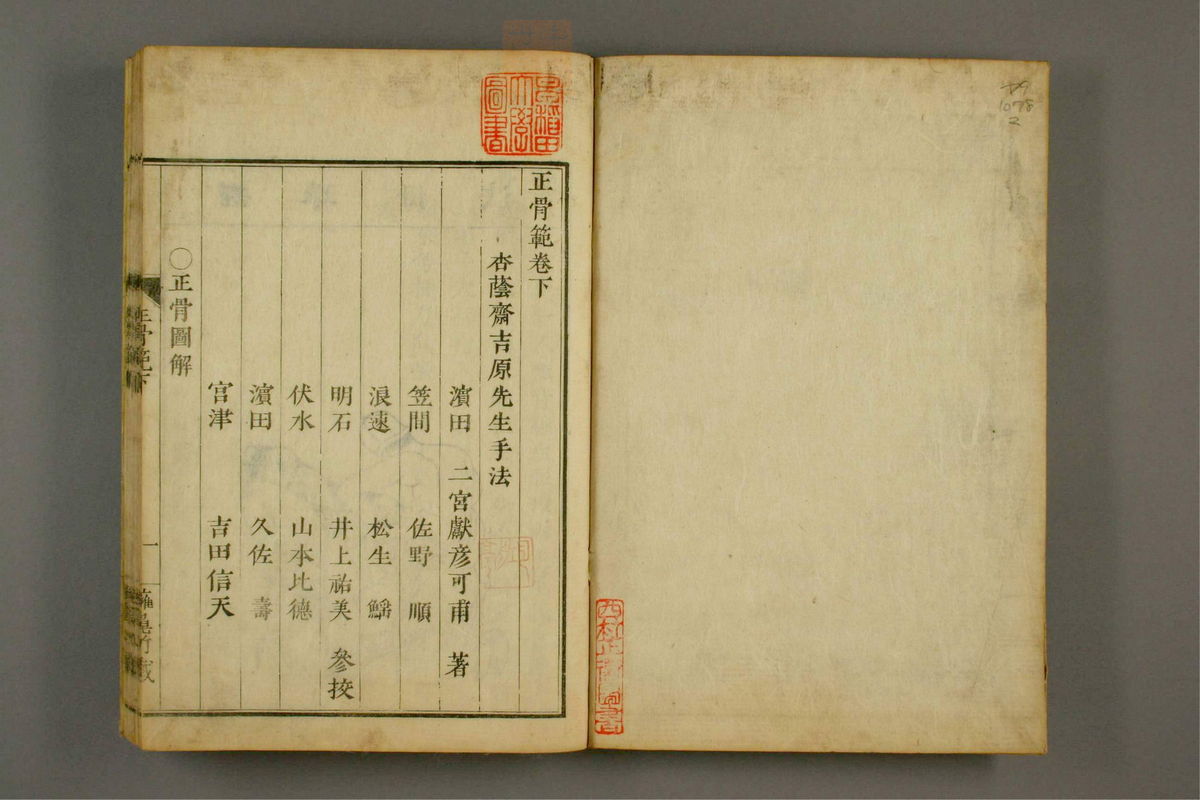 79
1078
2
早稲田大学図書
正骨範卷下
杏蔭齋吉原先生手法
濵田 二宮獻彦可甫 著
笠間 佐野 順
浪速 松生 鰩
明石 井上祐美 參挍
伏水 山本比德
濵田 久佐 壽
宮津 吉田信天
〇正骨圖解
正骨範下
一